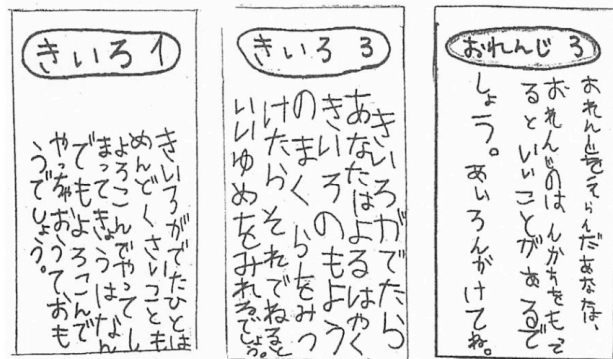 きいろ 1
きいろがでたひとは
めんどくさいことも
よろこんでやってし
まってきょうはなん
でもよろこんで
やっちゃおうておも
うでしょう。
きいろ 3
きいろがでたら
あなたはよるはやく
きいろのもよう
のまくらをみつ
けたらそれでねると
いいゆめをみれるでしょう。
おれんじ 3
おれんじをえらんだあなたは、
おれんじのはんかちをもって
るといいことがあるで
しょう。あいろんがけてね。